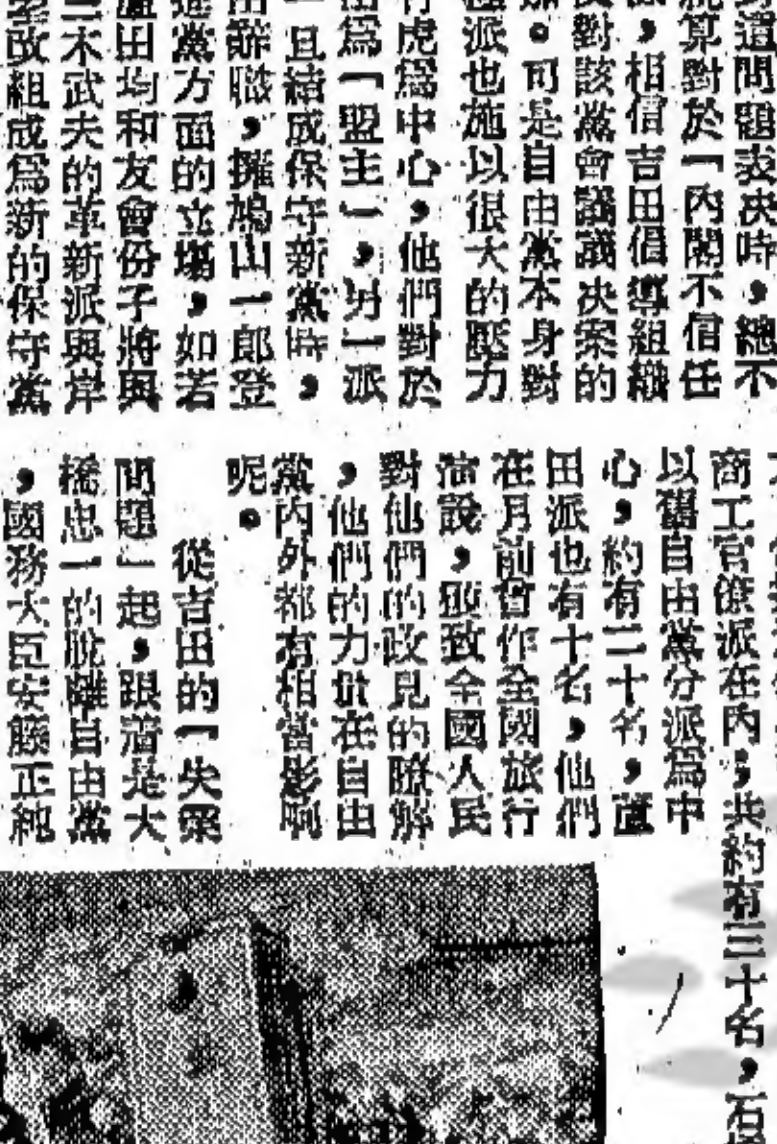 身這問題表决時,總不
就算對於「內閣不信任
,相信吉田倡導組織
反對該黨會議議决案的
。可是自由黨本身對
派也施以很大的壓力
行虎爲中心,他們對於
爲「盟主」,另一派
一旦結成保守新黨時,
田辭職,擁鳩山一郎登
進黨方面的立塲,如若
蘆田均和友會份子將與
三木武夫的革新派與岸
改組成爲新的保守黨
商工官僚派在內,共約有三十名,石
以舊自由黨分派爲中
心,約有二十名,蘆
田派也有十名,他們
在月前曾作全國旅行
演說,頗致全國人民
對他們的政見的瞭解
,他們的力量在自由
黨內外都有相當影响
呢。
從吉田的「失
問題」起,跟着是大
橋忠一的脫離自由黨
,國務大臣安藤正純